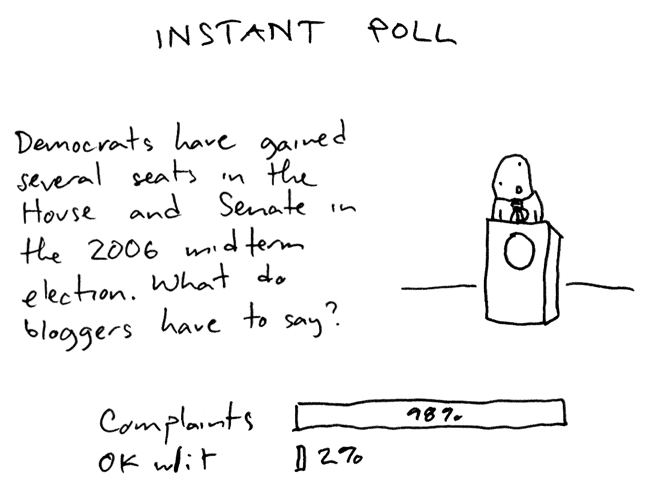 INSTANT POLL
Democrats have gained
several seats in the
House and Senate in
the 2006 midterm
election. What do
bloggers have to say?
Complaints 98%
OK w/it 2%